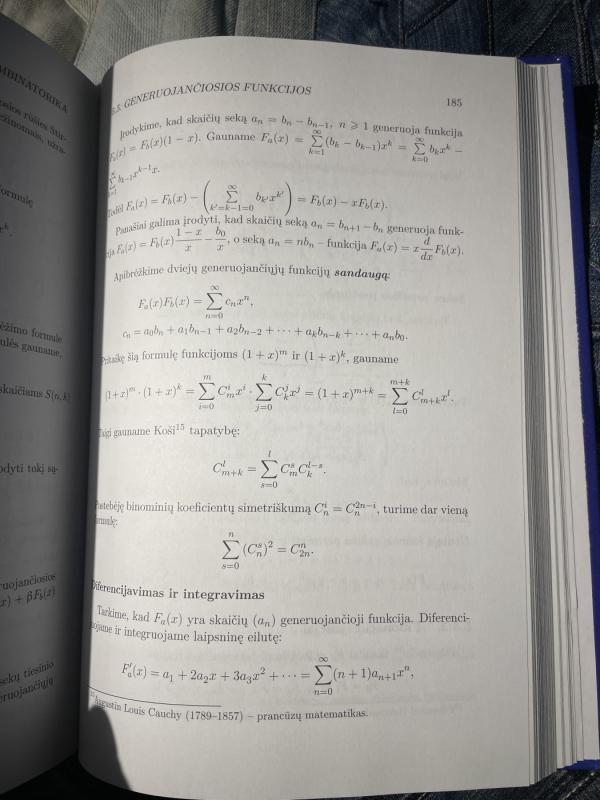 MBINATORIKA
ėžinomais, užra-
formulę
ėžimo formule
ulės gauname,
skaičiams S(n, k)
odyti tokį są-
ruojančiosios
(x) + βF_b(x)
sekų tiesinio
eruojančiųjų
5.5. GENERUOJANČIOSIOS FUNKCIJOS 185
Įrodykime, kad skaičių seką a_n = b_n − b_{n−1}, n ⩾ 1 generuoja funkcija
F_a(x) = F_b(x)(1 − x). Gauname F_a(x) = ∑_{k=1}^{∞} (b_k − b_{k−1})x^k = ∑_{k=0}^{∞} b_k x^k −
∑_{k=1}^{∞} b_{k−1}x^{k−1}x.
Todėl F_a(x) = F_b(x) − ( ∑_{k'=k−1=0}^{∞} b_{k'}x^{k'} ) = F_b(x) − xF_b(x).
Panašiai galima įrodyti, kad skaičių seką a_n = b_{n+1} − b_n generuoja funk-
cija F_a(x) = F_b(x) \frac{1 − x}{x} − \frac{b_0}{x}, o seką a_n = nb_n – funkcija F_a(x) = x \frac{d}{dx} F_b(x).
Apibrėžkime dviejų generuojančiųjų funkcijų sandaugą:
F_a(x)F_b(x) = ∑_{n=0}^{∞} c_n x^n,
c_n = a_0b_n + a_1b_{n−1} + a_2b_{n−2} + ⋯ + a_kb_{n−k} + ⋯ + a_nb_0.
Pritaikę šią formulę funkcijoms (1 + x)^m ir (1 + x)^k, gauname
(1+x)^m · (1 + x)^k = ∑_{i=0}^{m} C_m^i x^i · ∑_{j=0}^{k} C_k^j x^j = (1 + x)^{m+k} = ∑_{l=0}^{m+k} C_{m+k}^l x^l.
Taigi gauname Koši^{15} tapatybę:
C_{m+k}^l = ∑_{s=0}^{l} C_m^s C_k^{l−s}.
Pastebėję binominių koeficientų simetriškumą C_n^i = C_n^{2n−i}, turime dar vieną
formulę:
∑_{s=0}^{n} (C_n^s)^2 = C_{2n}^n.
Diferencijavimas ir integravimas
Tarkime, kad F_a(x) yra skaičių (a_n) generuojančioji funkcija. Diferenci-
juojame ir integruojame laipsninę eilutę:
F'_a(x) = a_1 + 2a_2x + 3a_3x^2 + ⋯ = ∑_{n=0}^{∞} (n + 1)a_{n+1}x^n,
^{15}Augustin Louis Cauchy (1789–1857) – prancūzų matematikas.